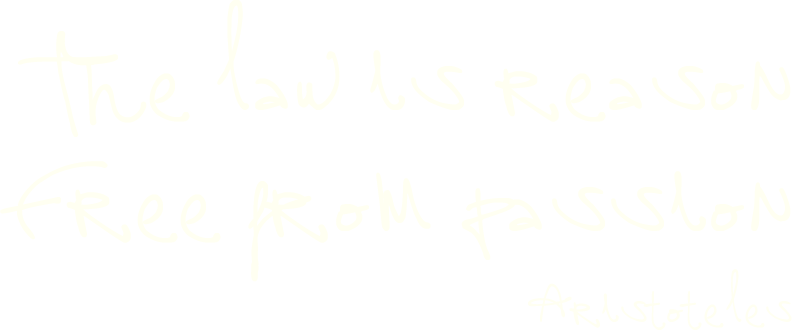 the law is reason
free from passion
Aristoteles